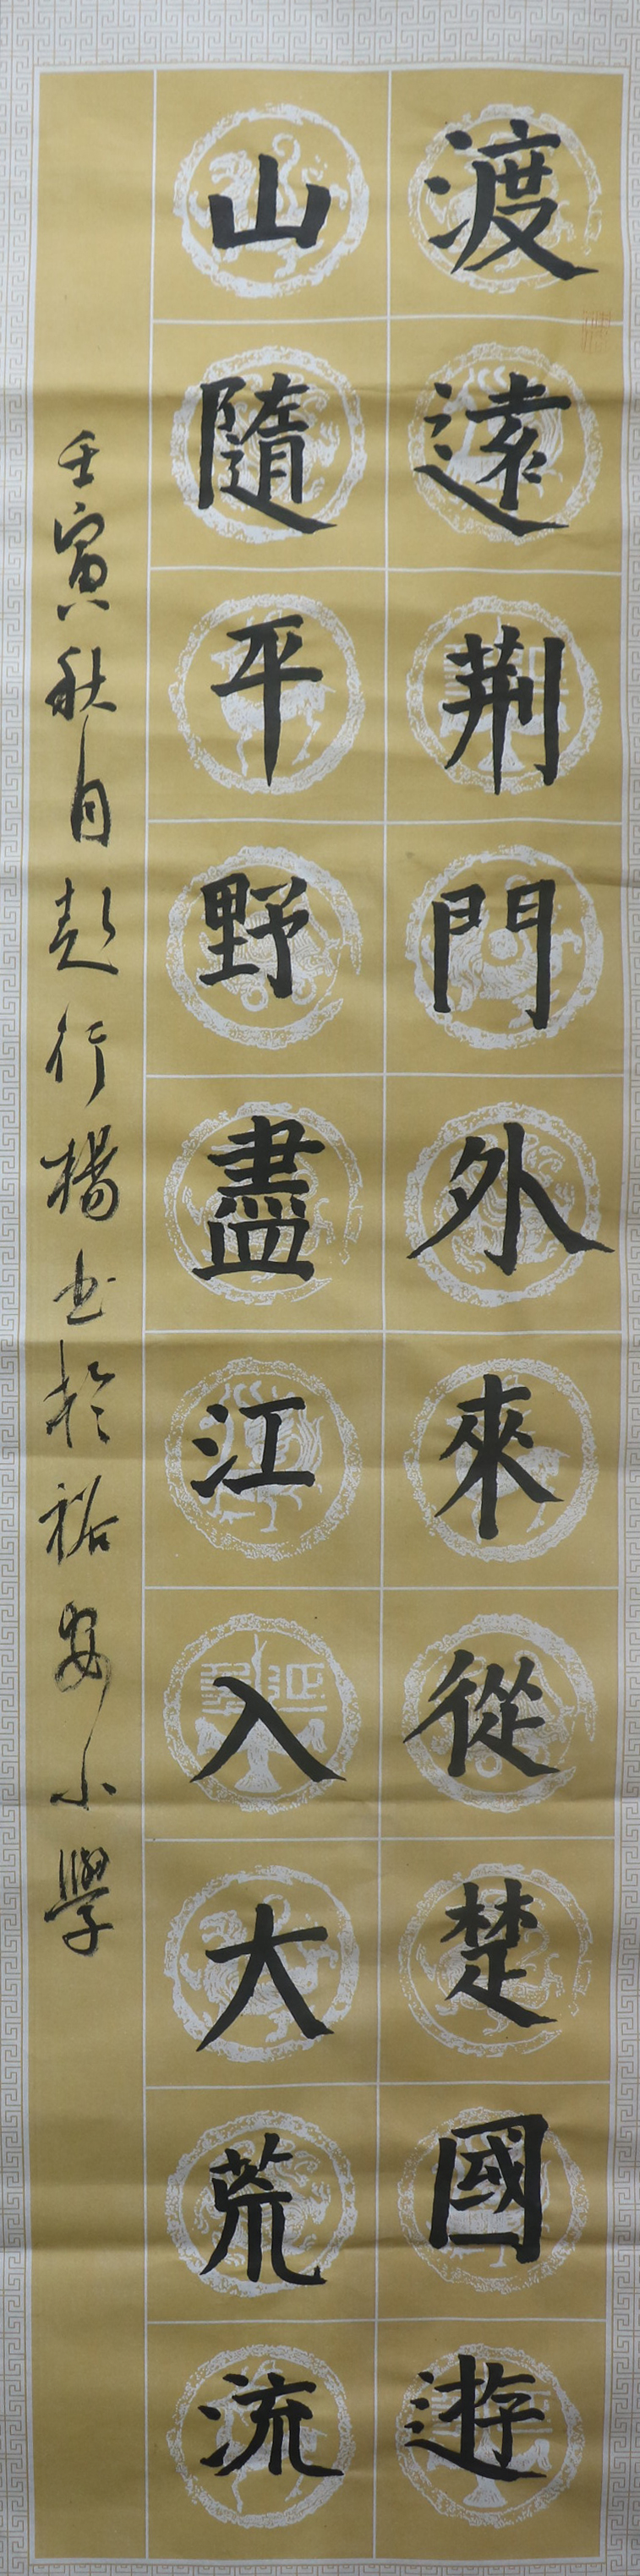 渡遠荊門外來從楚國遊
山隨平野盡江入大荒流
壬寅秋月彭行楊书於裕安小學